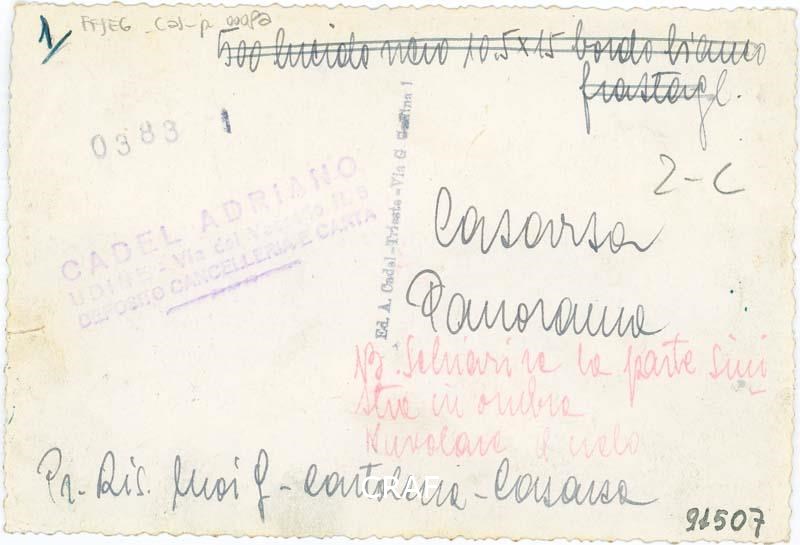 1/ FFJEG Cas-p 0008a
500 lucido nero 10.5x15 bordo bianco
frastagl.
0383
2-C
CADEL ADRIANO
UDINE - Via del
DEPOSITO CANCELLERIA E CARTA
Ed. A. Cadel-Trieste-Via G
Casarsa
Panorama
NB. Schiarire la parte sini
stra in ombra
Nuvolare il cielo
Pr. Ris. - Cartoleria - Casarsa
CRAF
91507